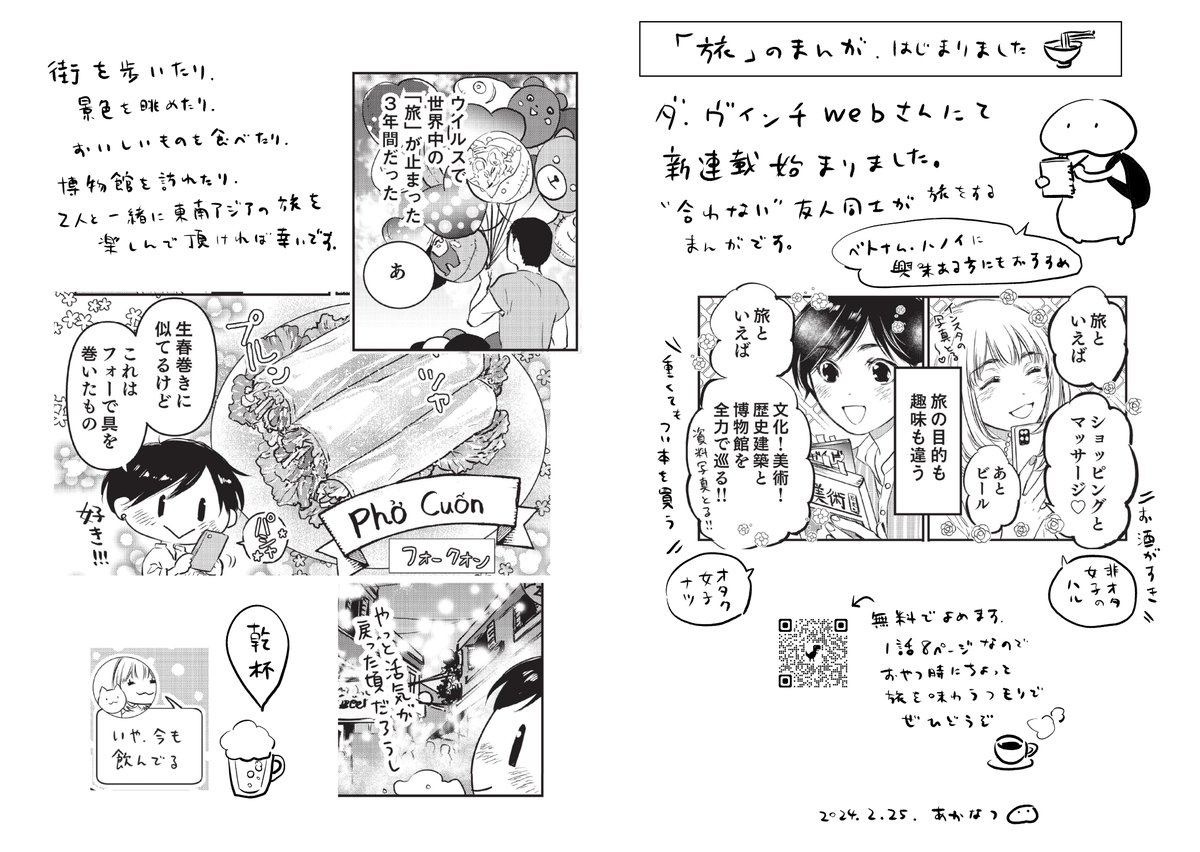 「旅」のまんが、はじまりました
ダ・ヴィンチwebさんにて
新連載始まりました。
"合わない"友人同士が旅をする
まんがです。
ベトナム・ハノイに
興味ある方にもおすすめ
旅と
いえば
ショッピングと
マッサージ♡
あと
ビール
インスタの
写真とる♡
旅の目的も
趣味も違う
旅と
いえば
文化!美術!
歴史建築と
博物館を
全力で巡る!!
資料写真とる!!
美術
=お酒がすき=
=重くてもつい本を買う=
非オタ
女子の
ハル
オタク
女子
ナツ
無料でよめます。
1話8ページなので
おやつ時にちょっと
旅を味わうつもりで
ぜひどうぞ
2024.2.25. あかなつ
街を歩いたり、
景色を眺めたり、
おいしいものを食べたり、
博物館を訪れたり、
2人と一緒に東南アジアの旅を
楽しんで頂ければ幸いです。
ウイルスで
世界中の
「旅」が止まった
3年間だった
あ
プルルン
ツヤ
生春巻きに
似てるけど
これは
フォーで具を
巻いたもの
好き!!!
パシャ
Phở Cuốn
フォークオン
やっと活気が
戻った頃だろうし
乾杯
いや、今も
飲んでる